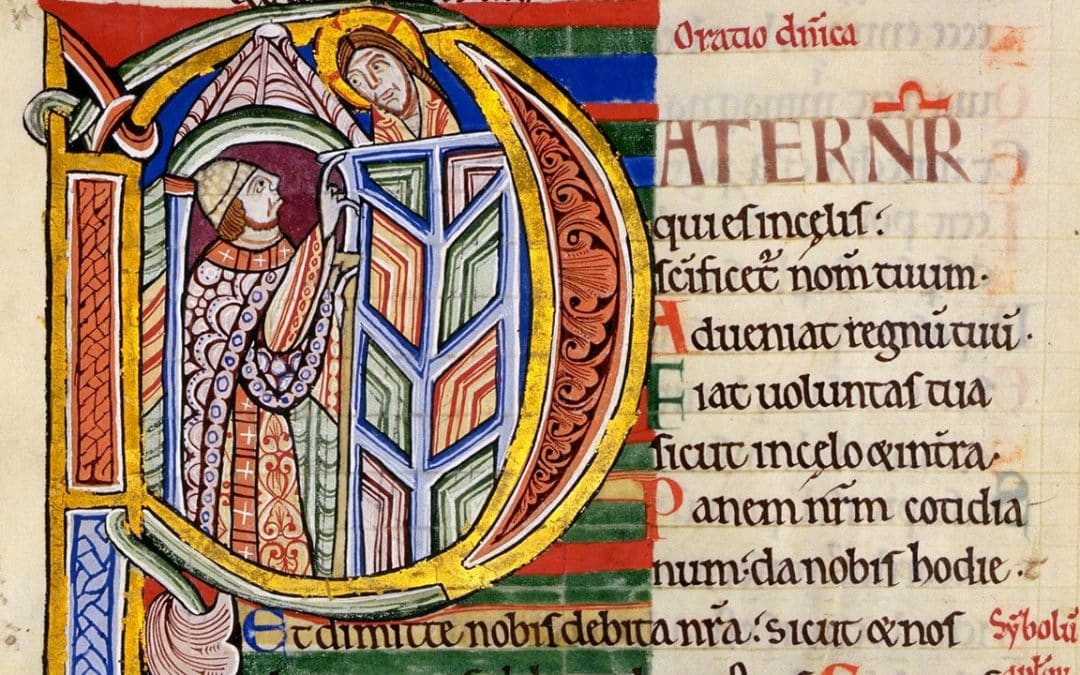 Oratio dn̄ica
PATER N̄R
qui es in cęlis:
sc̄ificet᷑ nom̄ tuum·
Adueniat regnū tuū·
Fiat uoluntas tua
sicut in cęlo & in tr̄a·
Panem nr̄m cotidia
num: da nobis hodie·
Et dimitte nobis debita nr̄a: sicut & nos
Sẏbolū